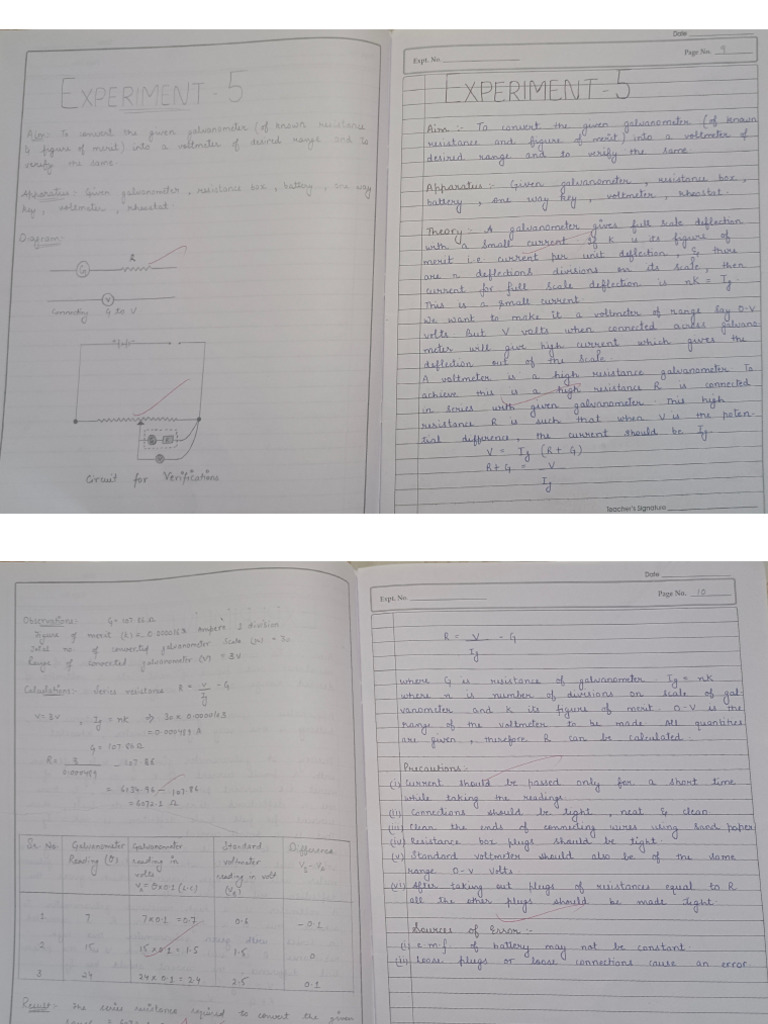 EXPERIMENT - 5
Aim:- To convert the given galvanometer (of known resistance
& figure of merit) into a voltmeter of desired range and to
verify the same.
Apparatus:- Given galvanometer, resistance box, battery, one way
key, voltmeter, rheostat.
Diagram:
R
G
V
Connecting G to V
Circuit for Verifications
Date
Expt. No.
Page No. 9
EXPERIMENT - 5
Aim :- To convert the given galvanometer (of known
resistance and figure of merit) into a voltmeter of
desired range and to verify the same.
Apparatus :- Given galvanometer, resistance box,
battery, one way key, voltmeter, rheostat.
Theory :- A galvanometer gives full scale deflection
with a small current If K is its figure of
merit i.e current per unit deflection, & there
are n deflections divisions on its scale, then
current for full scale deflection is nK = Ig
This is a small current.
We want to make it a voltmeter of range say 0-V
volts But V volts when connected across galvano
meter will give high current which gives the
deflection out of the scale.
A voltmeter is a high resistance galvanometer To
achieve this is a high resistance R is connected
in series with given galvanometer. This high
resistance R is such that when V is the poten-
tial difference, the current should be Ig.
V = Ig (R + G)
R + G = V
Ig
Teacher's Signature
Observations: G = 107.86 Ω
Figure of merit (k) = 0.0000163 Ampere / division
Total no. of converted galvanometer scale (n) = 30
Range of converted galvanometer (V) = 3V
Calculations:- Series resistance R = V/Ig - G
V = 3V , Ig = nk ⇒ 30 x 0.0000163
G = 107.86 Ω
R = 3 - 107.86
= 107.86
Sr. No
Galvanometer Reading (θ)
Galvanometer reading in volts
Standard voltmeter reading in volt
Difference
1 7 7x0.1 = 0.7 0.6 - 0.1
2 15 15x0.1 = 1.5 1.5 0
3 24 24x0.1 = 2.4 2.5 0.1
Result:- The series resistance required to convert the given
Date
Expt. No.
Page No. 10
R = V - G
Ig
where G is resistance of galvanometer Ig = nk
where n is number of divisions on scale of gal-
vanometer and k its figure of merit. 0-V is the
range of the voltmeter to be made All quantities
are given, therefore R can be calculated.
Precautions:-
(i) Current should be passed only for a short time
while taking the readings.
(ii) Connections should be tight, neat & clean
(iii) Clean the ends of connecting wires using sand paper
(iv) Resistance box plugs should be tight.
(v) Standard voltmeter should also be of the same
range 0-V volts.
(vi) After taking out plugs of resistances equal to R
all the other plugs should be made tight.
Sources of Error :-
(i) e.m.f. of battery may not be constant.
(ii) Loose plugs or loose connections cause an error.